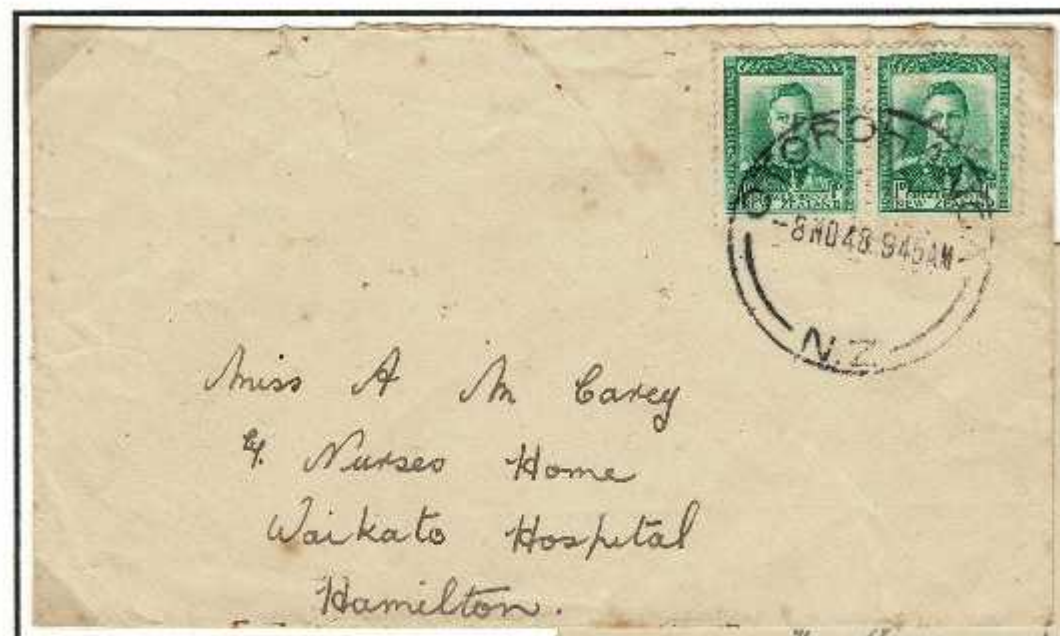 1ᴰ 1ᴰ
NEW ZEALAND NEW ZEALAND
-8 NO 48. 945AM-
N.Z.
Miss A M Carey
c/. Nurses Home
Waikato Hospital
Hamilton.